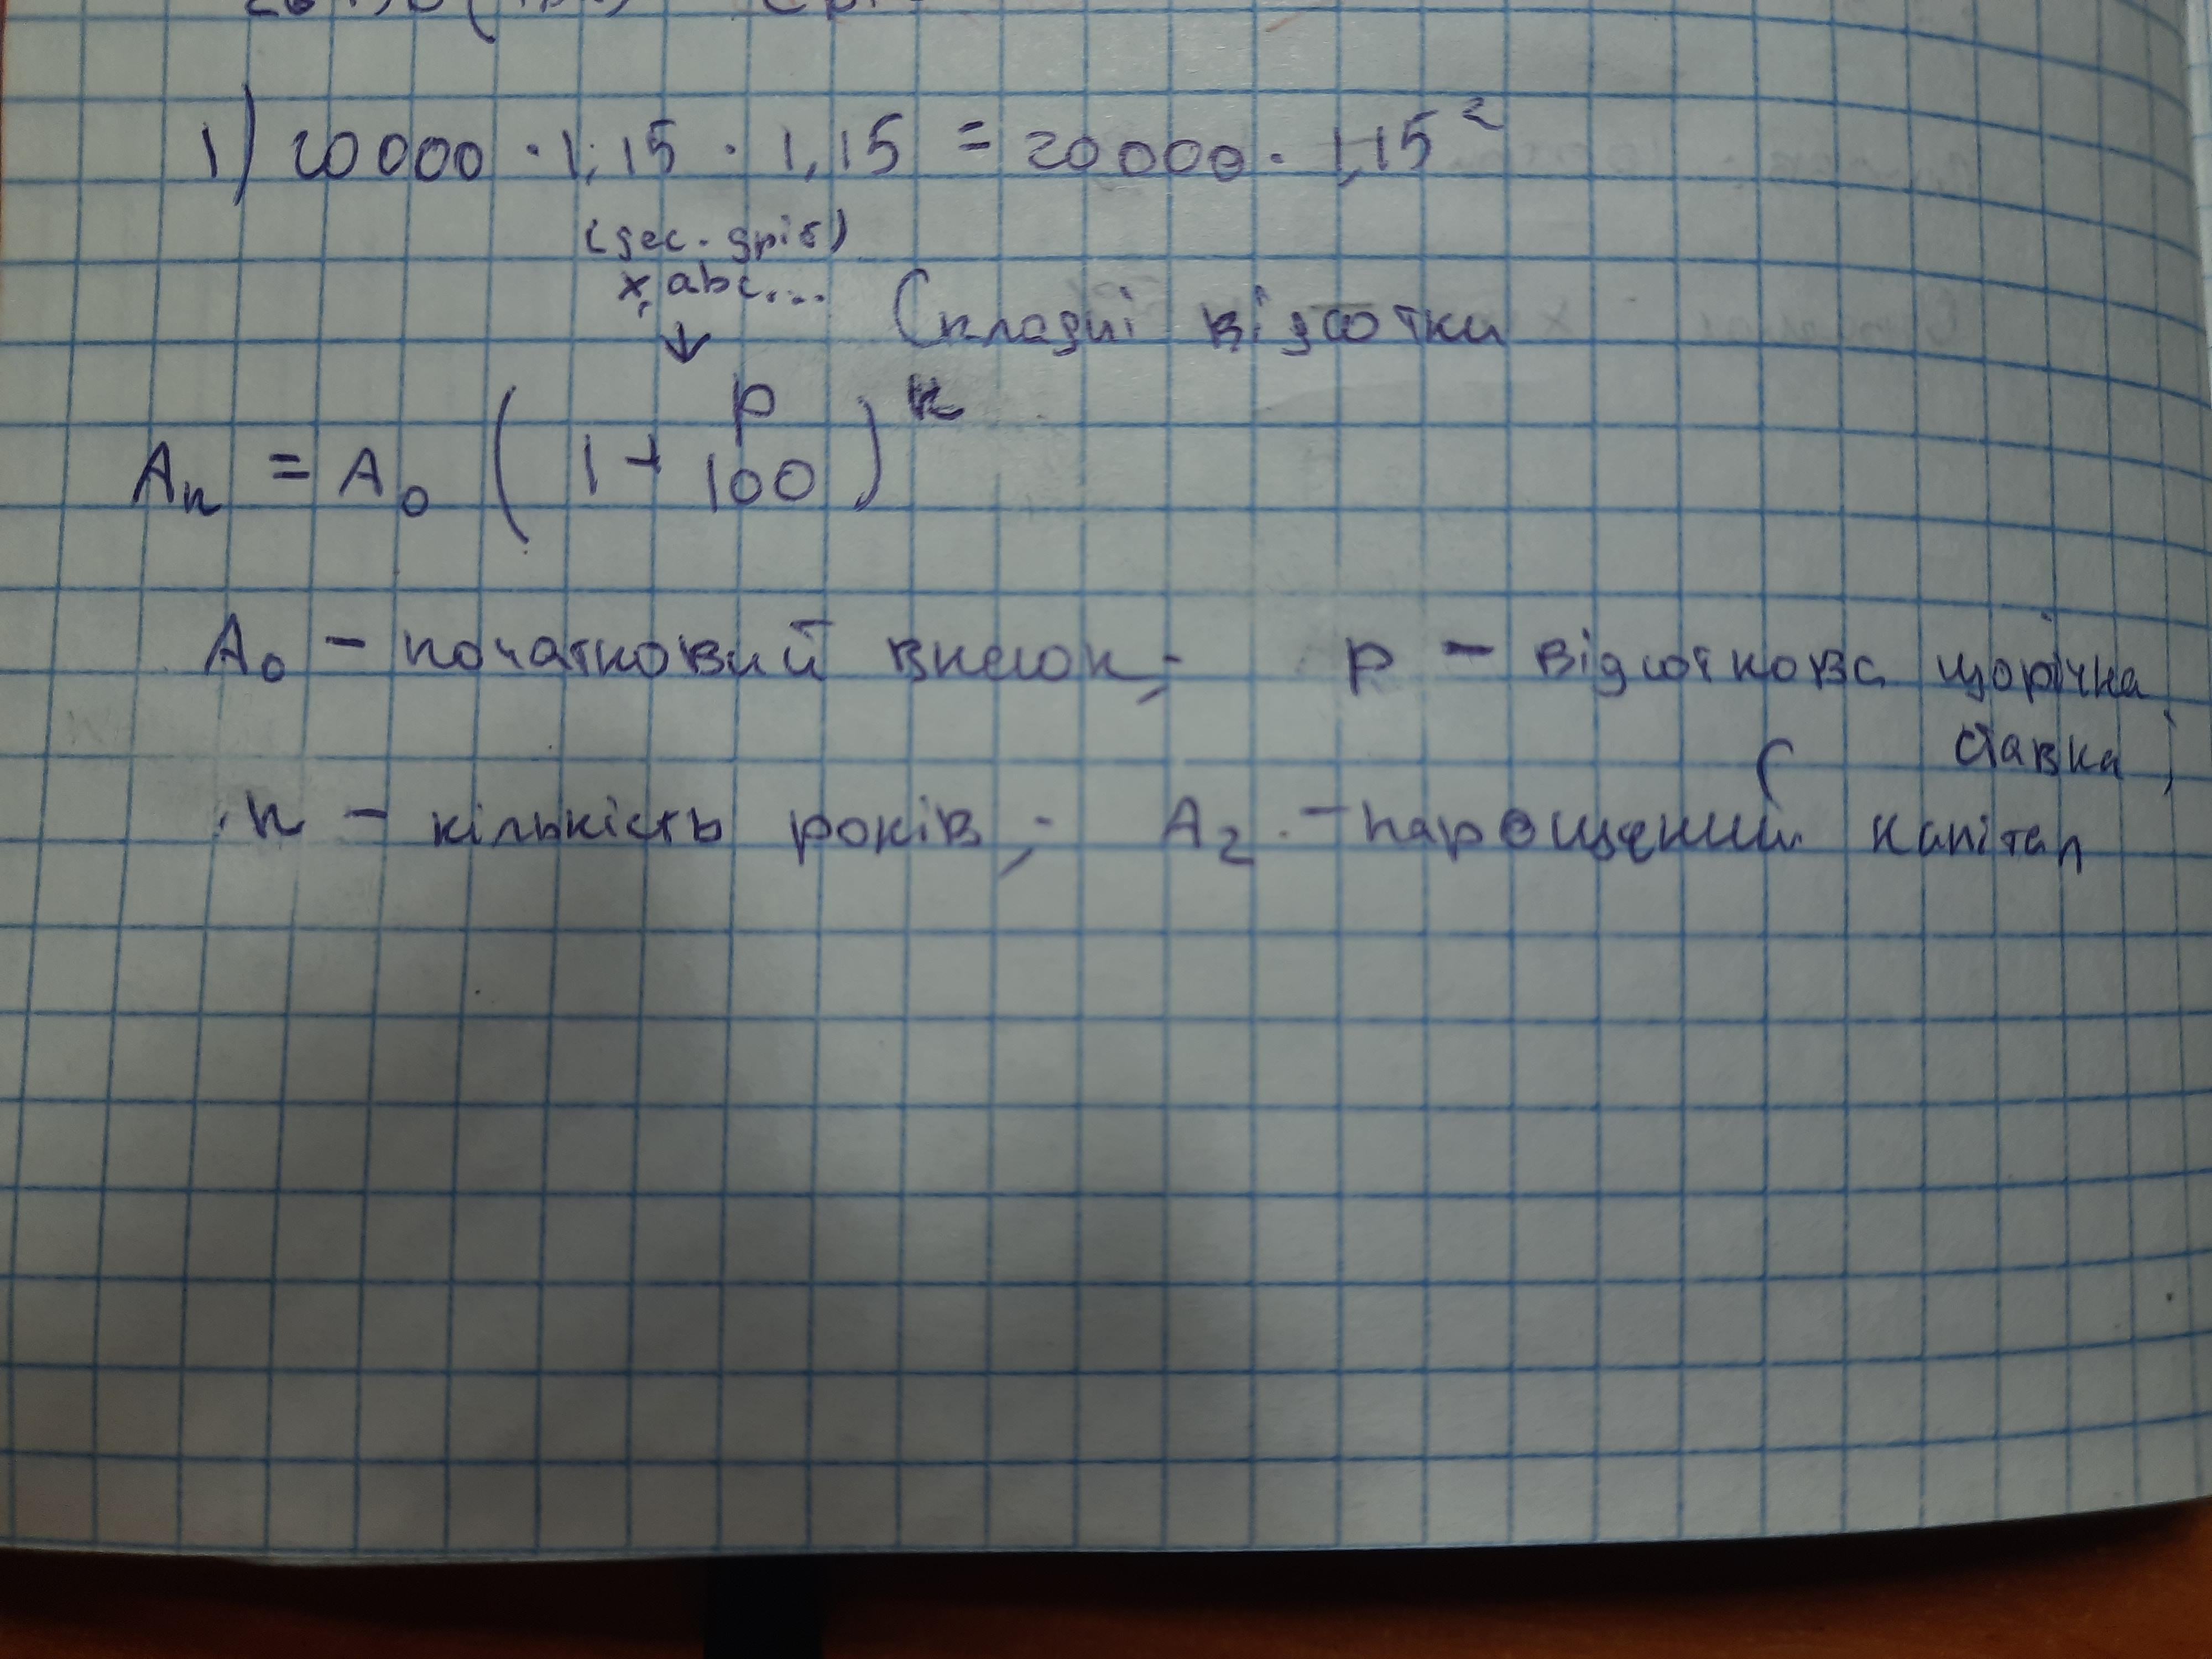 1) 20000 · 1,15 · 1,15 = 20000 · 1,15²
(дес. дріб)
x,abc...
↓
Складні відсотки
Aₙ = A₀ (1 + p/100)ⁿ
A₀ – початковий внесок; p – відсоткова щорічна
ставка;
n – кількість років; A₂ – нарощений капітал